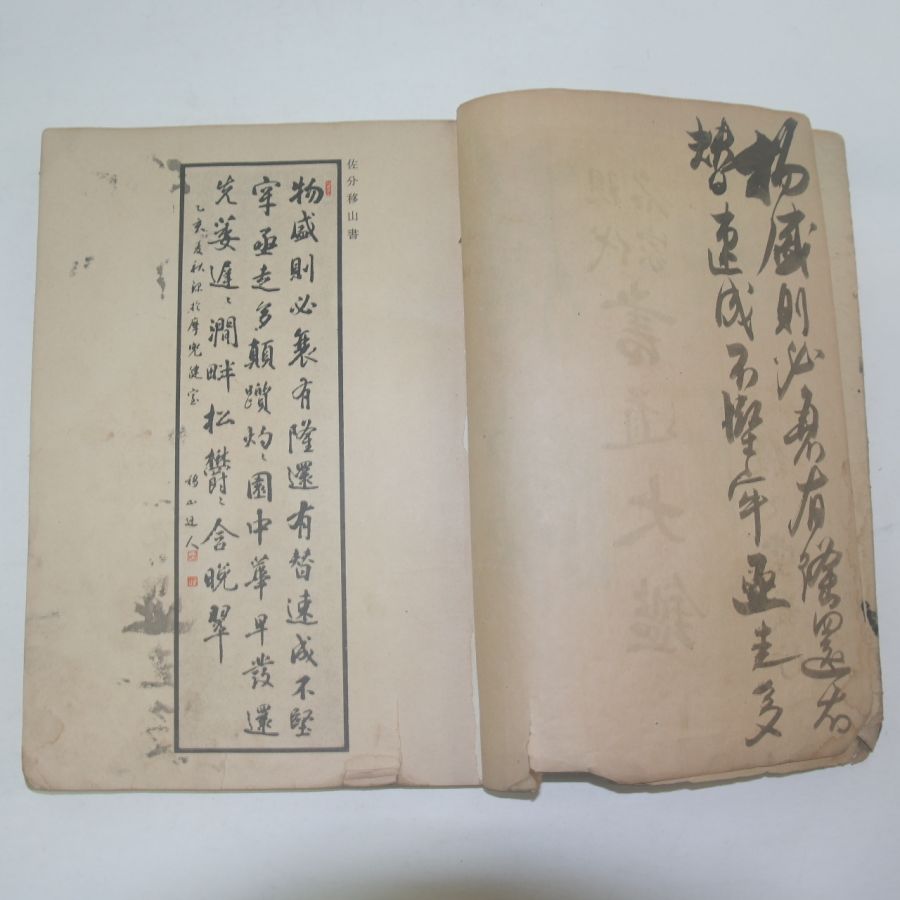 物盛則必衰有隆還有
替速成不堅牢亟走多
佐分移山書
物盛則必衰有隆還有替速成不堅
牢亟走多顛躓灼〻園中華早發還
先萎遲〻澗畔松鬱〻含晚翠
乙亥夏秋於摩兜犍室
移山人